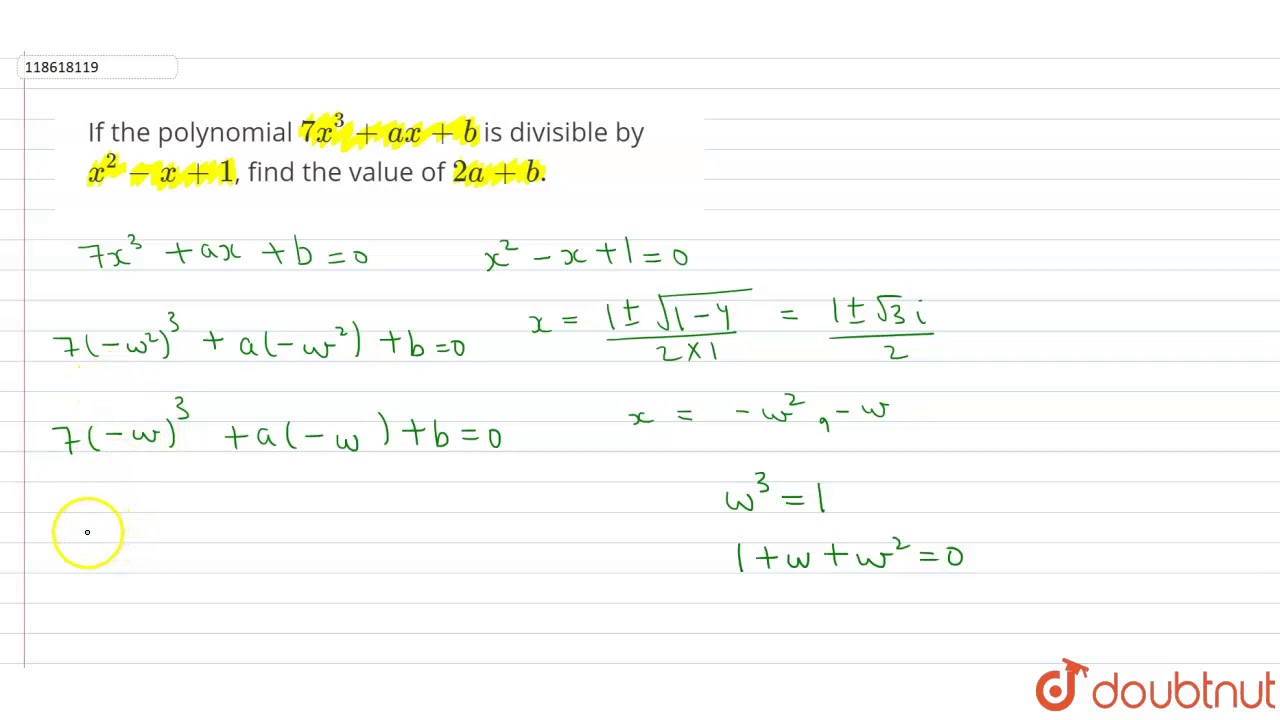 118618119
If the polynomial 7x³ + ax + b is divisible by
x² − x + 1, find the value of 2a + b.
7x³ + ax + b = 0
x² − x + 1 = 0
7(−w²)³ + a(−w²) + b = 0
x = (1 ± √(1 − 4))/(2×1) = (1 ± √3 i)/2
7(−w)³ + a(−w) + b = 0
x = −w², −w
w³ = 1
1 + w + w² = 0
doubtnut